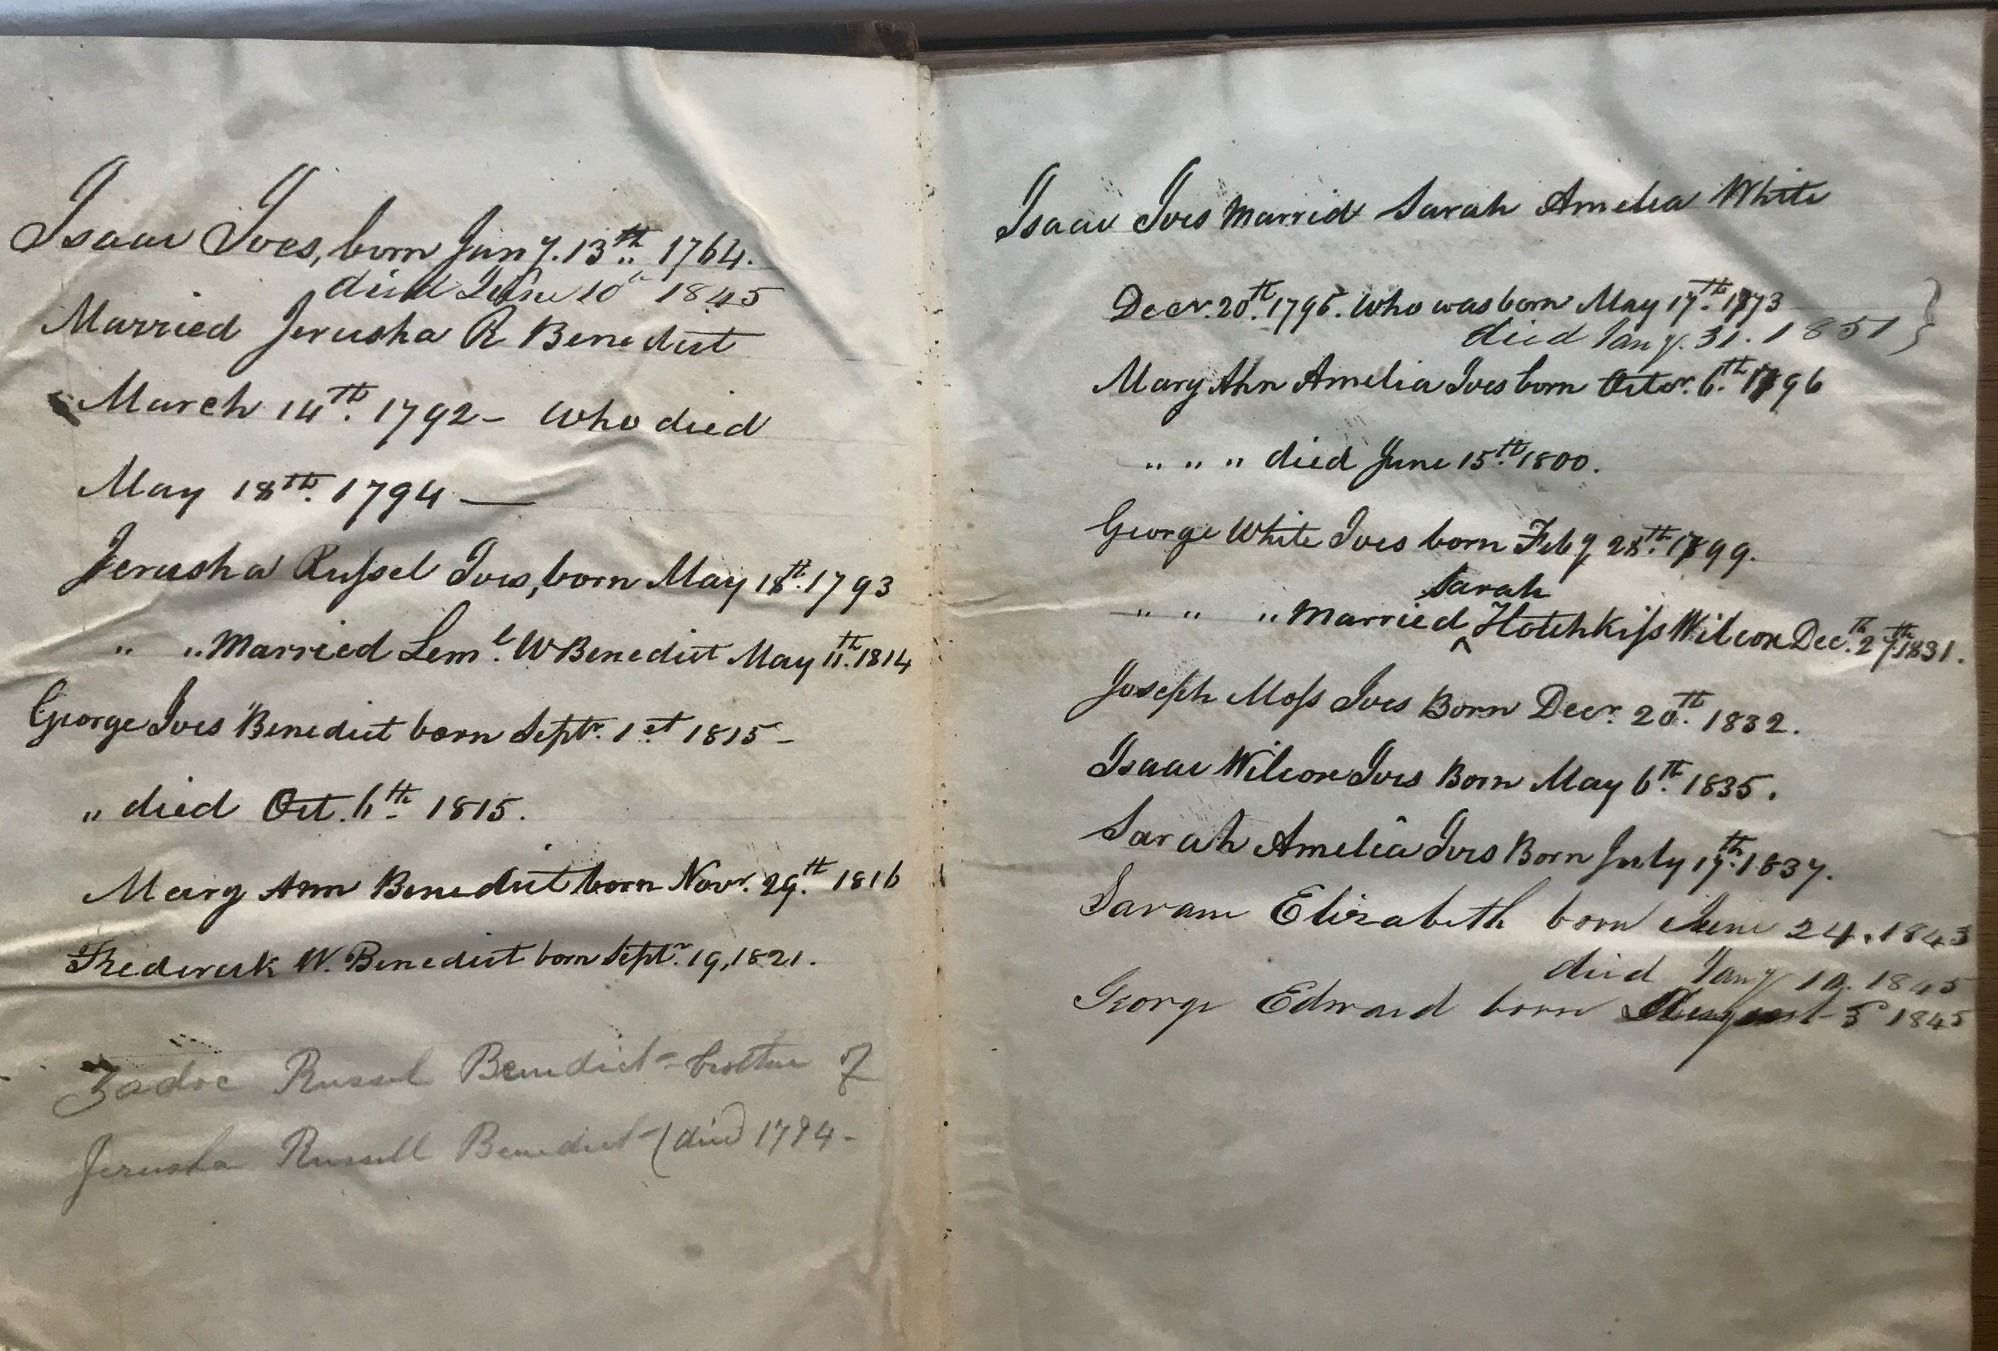 Isaac Ives, born Jany. 13th. 1764.
died June 10th 1845
Married Jerusha R Benedict
March 14th. 1792 - Who died
May 18th. 1794 —
Jerusha Rufsel Ives, born May 18th. 1793
" " Married Leml. W Benedict May 11th. 1814
George Ives Benedict born Septr. 1st 1815 -
" died Oct. 6th 1815.
Mary Ann Benedict born Novr. 29.th 1816
Frederick W. Benedict born Septr. 19, 1821.
Zadoc Russel Benedict - brother of
Jerusha Russell Benedict - (died 1794 -
Isaac Ives Married Sarah Amelia White
Decr. 20th. 1795. Who was born May 17th. 1773
died Jany. 31. 1851 }
Mary Ann Amelia Ives born Octor. 6th. 1796
" " " died June 15th. 1800.
George White Ives born Feby 28th. 1799.
Sarah
" " " Married ^ Hotchkifs Wilcox Dec. 27th 1831.
Joseph Mofs Ives Born Decr. 20th. 1832.
Isaac Wilcox Ives Born May 6th. 1835.
Sarah Amelia Ives Born July 17th. 1837.
Sarah Elizabeth born June 24. 1843
died Jany 10. 1845
George Edward born August 5 1845